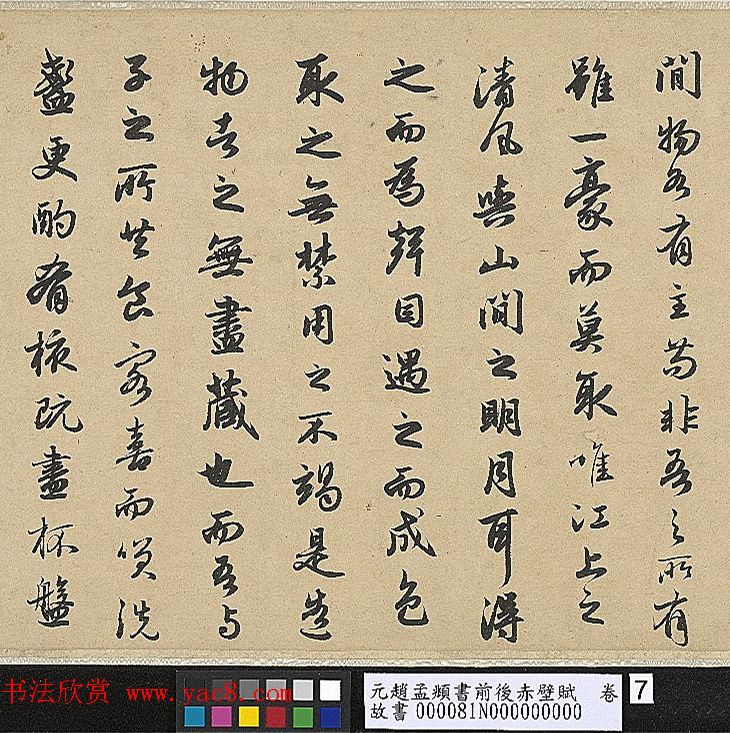 間物各有主苟非吾之所有
雖一豪而莫取唯江上之
清風與山間之明月耳得
之而為聲目遇之而成色
取之無禁用之不竭是造
物者之無盡藏也而吾與
子之所共食客喜而笑洗
盞更酌肴核既盡杯盤
书法欣赏 www.yac8.com
元趙孟頫書前後赤壁賦 卷 7
故書 000081N000000000